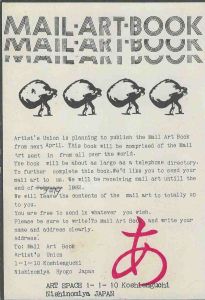 MAIL·ART·BOOK
MAIL·ART·BOOK
MAIL·ART·BOOK
Artist's Union is planning to publish the Mail Art Book
from next April. This book will be comprised of the Mail
Art sent in from all over the world.
The book will be about as large as a telephone directory.
To further complete this book.We'd like you to send your
mail art to us. We will be receiving mail art until the
end of 1982.
We will leave the contents of the mail art totally up to
you.
You are free to send in whatever you wish.
Please be sure to write"To Mail Art Book" and write your
name and address clearly.
address.
To: Mail Art Book
Artist's Union
1-1-10 Koshienguchi
Nishinomiya Hyogo Japan
あ
ART SPACE 1-1-10 Koshienguchi
Nishinomiya JAPAN